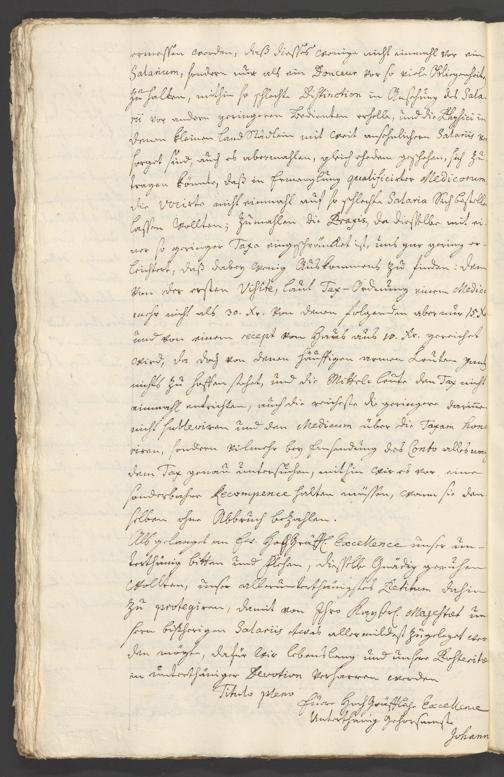 ermessen worden, daß dieses wenige nicht einmahl vor ein
Salarium, sondern nur als ein Douceur vor so viele Obliegenheit
zu halten, mithin so schlechte Distinction in Ansehung des Sala
rii vor andern geringern Bedienten erhelle, und die Physici in
denen kleinen Land Städtlein mit weit ansehnlichern Salariis ver
sorget sind, auch es abermahlen, gleich ehedem geschehen, sich zu
tragen könnte, daß in Ermanglung qualificirter Medicorum
die nicht einmahl auf so schlechte Salaria sich bestellen
lassen wollten; zumahlen die Praxis, da dieselbe mit ei
ner so geringer Taxa eingeschräncket ist, uns gar gering er
leichtert, daß dabey wenig Auskommens zu finden: dann
von der ersten Visite, laut Tax-Ordnung einem Medico
mehr nicht als 30. Xr. von denen folgenden aber nur 15 Xr
und von einem recept von Haus aus 10. Xr. gereichet
wird, da doch von denen häuffigen armen Leuten gantz
nichts zu hoffen stehet, und die Mittel-leute den Tax nicht
einmahl entrichten, auch die reicheste die geringere darinnen
nicht und den Medicum über die Taxam hono
riren, sondern vielmehr bey Einsendung des Conto alles nach
dem Tax genau untersuchen, mithin wir es vor eine
sonderbahre Recompence halten müssen, wann sie den
selben ohne Abbruch bezahlen.
Als gelanget an Ew. HochGräffl. Excellence unser un-
terthänig bitten und flehen, dieselbe gnädig geruhen
wollten, unser allerunterthänigstes Petitum dahin
zu protegiren, damit von Ihro Kayserl. Majestæt un
sern bißherigen Salariis etwas allermildest zugeleget wer
den mögte, dafür wir lebenslang und unsere Posterität
in unterthäniger Devotion verharren werden
Titulo pleno
Euere HochGräffliche Excellence
Unterthänig gehorsamste
Johann